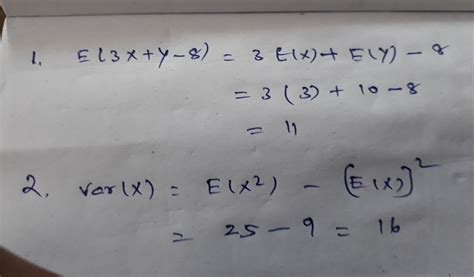 1. E(3x+y-8) = 3 E(x) + E(y) - 8
= 3 (3) + 10 - 8
= 11
2. var(x) = E(x²) - (E(x))²
= 25 - 9 = 16